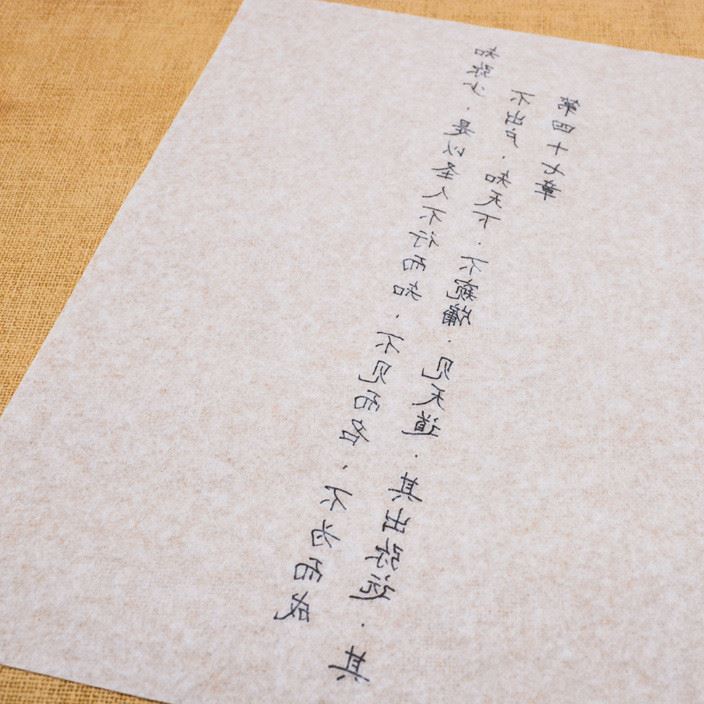 第四十七章
不出户、知天下、不窥牖、见天道、其出弥远、其
知弥少、是以圣人不行而知、不见而名、不为而成